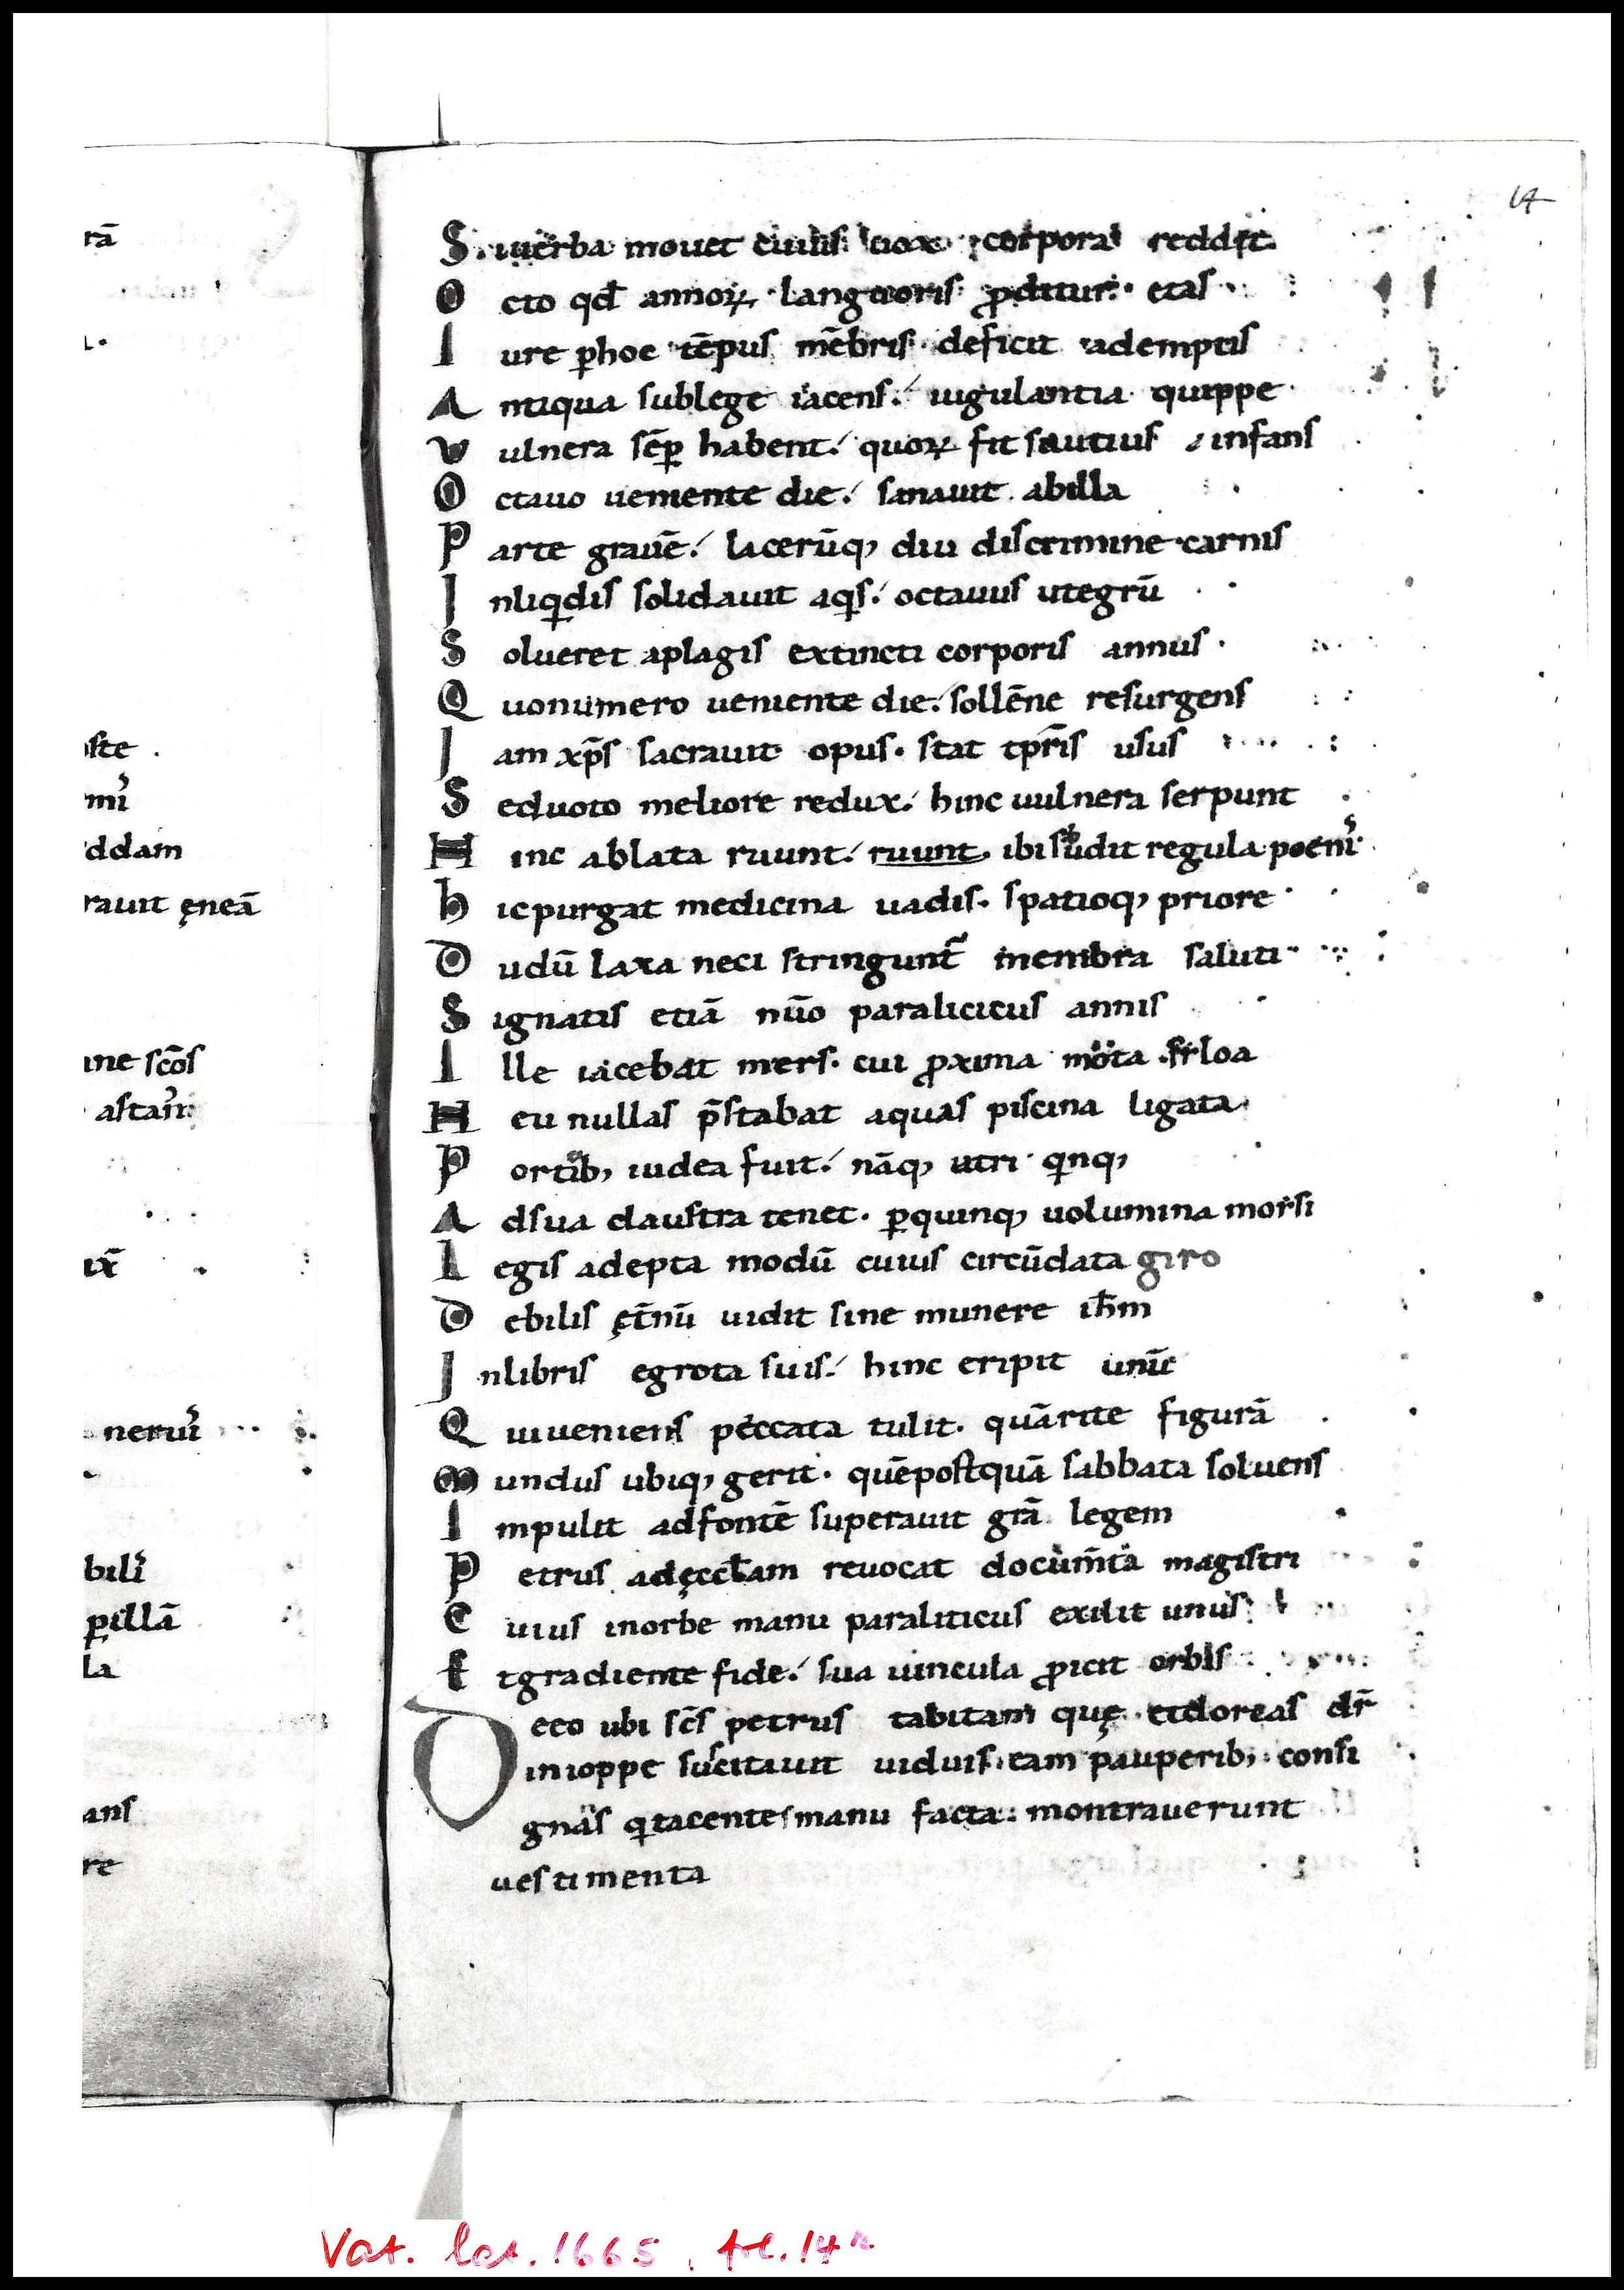 rã
oste .
mĩ
ddam
rauit ęneã
ine scõs
astañ
ux̃
nerũi
bilĩ
ꝑillã
la
ans
re
14
S i uerba mouet cuius uox corpora reddit.
O cto qđ annoꝝ languoris ꝓditur etas
I ure ꝑ hoc tẽpus mẽbris deficit ademptis
A ntiqua sublege iacens. iugulantia quippe
V ulnera sẽꝑ habent. quoꝝ fit sautius infans
O ctauo ueniente die. sanauit abilla
P arte grauẽ. lacerũq; diu discrimine carnis
I nliqdis solidauit aqs. octauus utegrũ
S olueret aplagis extincti corporis annus.
Q uonumero ueniente die. sollẽne resurgens
I am xp̃s sacrauit opus. stat tp̃ris usus
S eduoto meliore redux. hinc uulnera serpunt
H inc ablata ruunt. ruunt ibi sudit regula poeni
h icpurgat medicina uadis. spatioq; priore
D udũ laxa neci stringunt̃ membra saluti
S ignatis etiã nũo paraliticus annis
I lle iacebat iners. cui ꝓxima mota sirloa
H eu nullas p̃stabat aquas piscina ligata
P ortib; iudea fuit. nãq; utri qnq;
A dsua claustra tenet. ꝑquinq; uolumina morsi
L egis adepta modũ cuius circũdata giro
D ebilis ęt̃nũ uidit sine munere ih̃m
I nlibris egrota suis. hinc eripit unũ
Q uiueniens peccata tulit. quãrite figurã
M undus ubiq; gerit. quẽpostquã sabbata soluens
I mpulit adfontẽ superauit grã legem
P etrus adęccl̃am reuocat docum̃ta magistri
C uius inorbe manu paraliticus exilit unus
E tgradiente fide. sua uincula ꝓicit orbis
D eeo ubi sc̃s petrus tabitam quę etdorcas dr̃
inioppe suscitauit uiduis eam pauperib; consi
gnãs qtacentesmanu facta. montrauerunt
uestimenta
Vat. lat. 1665, fol. 14r